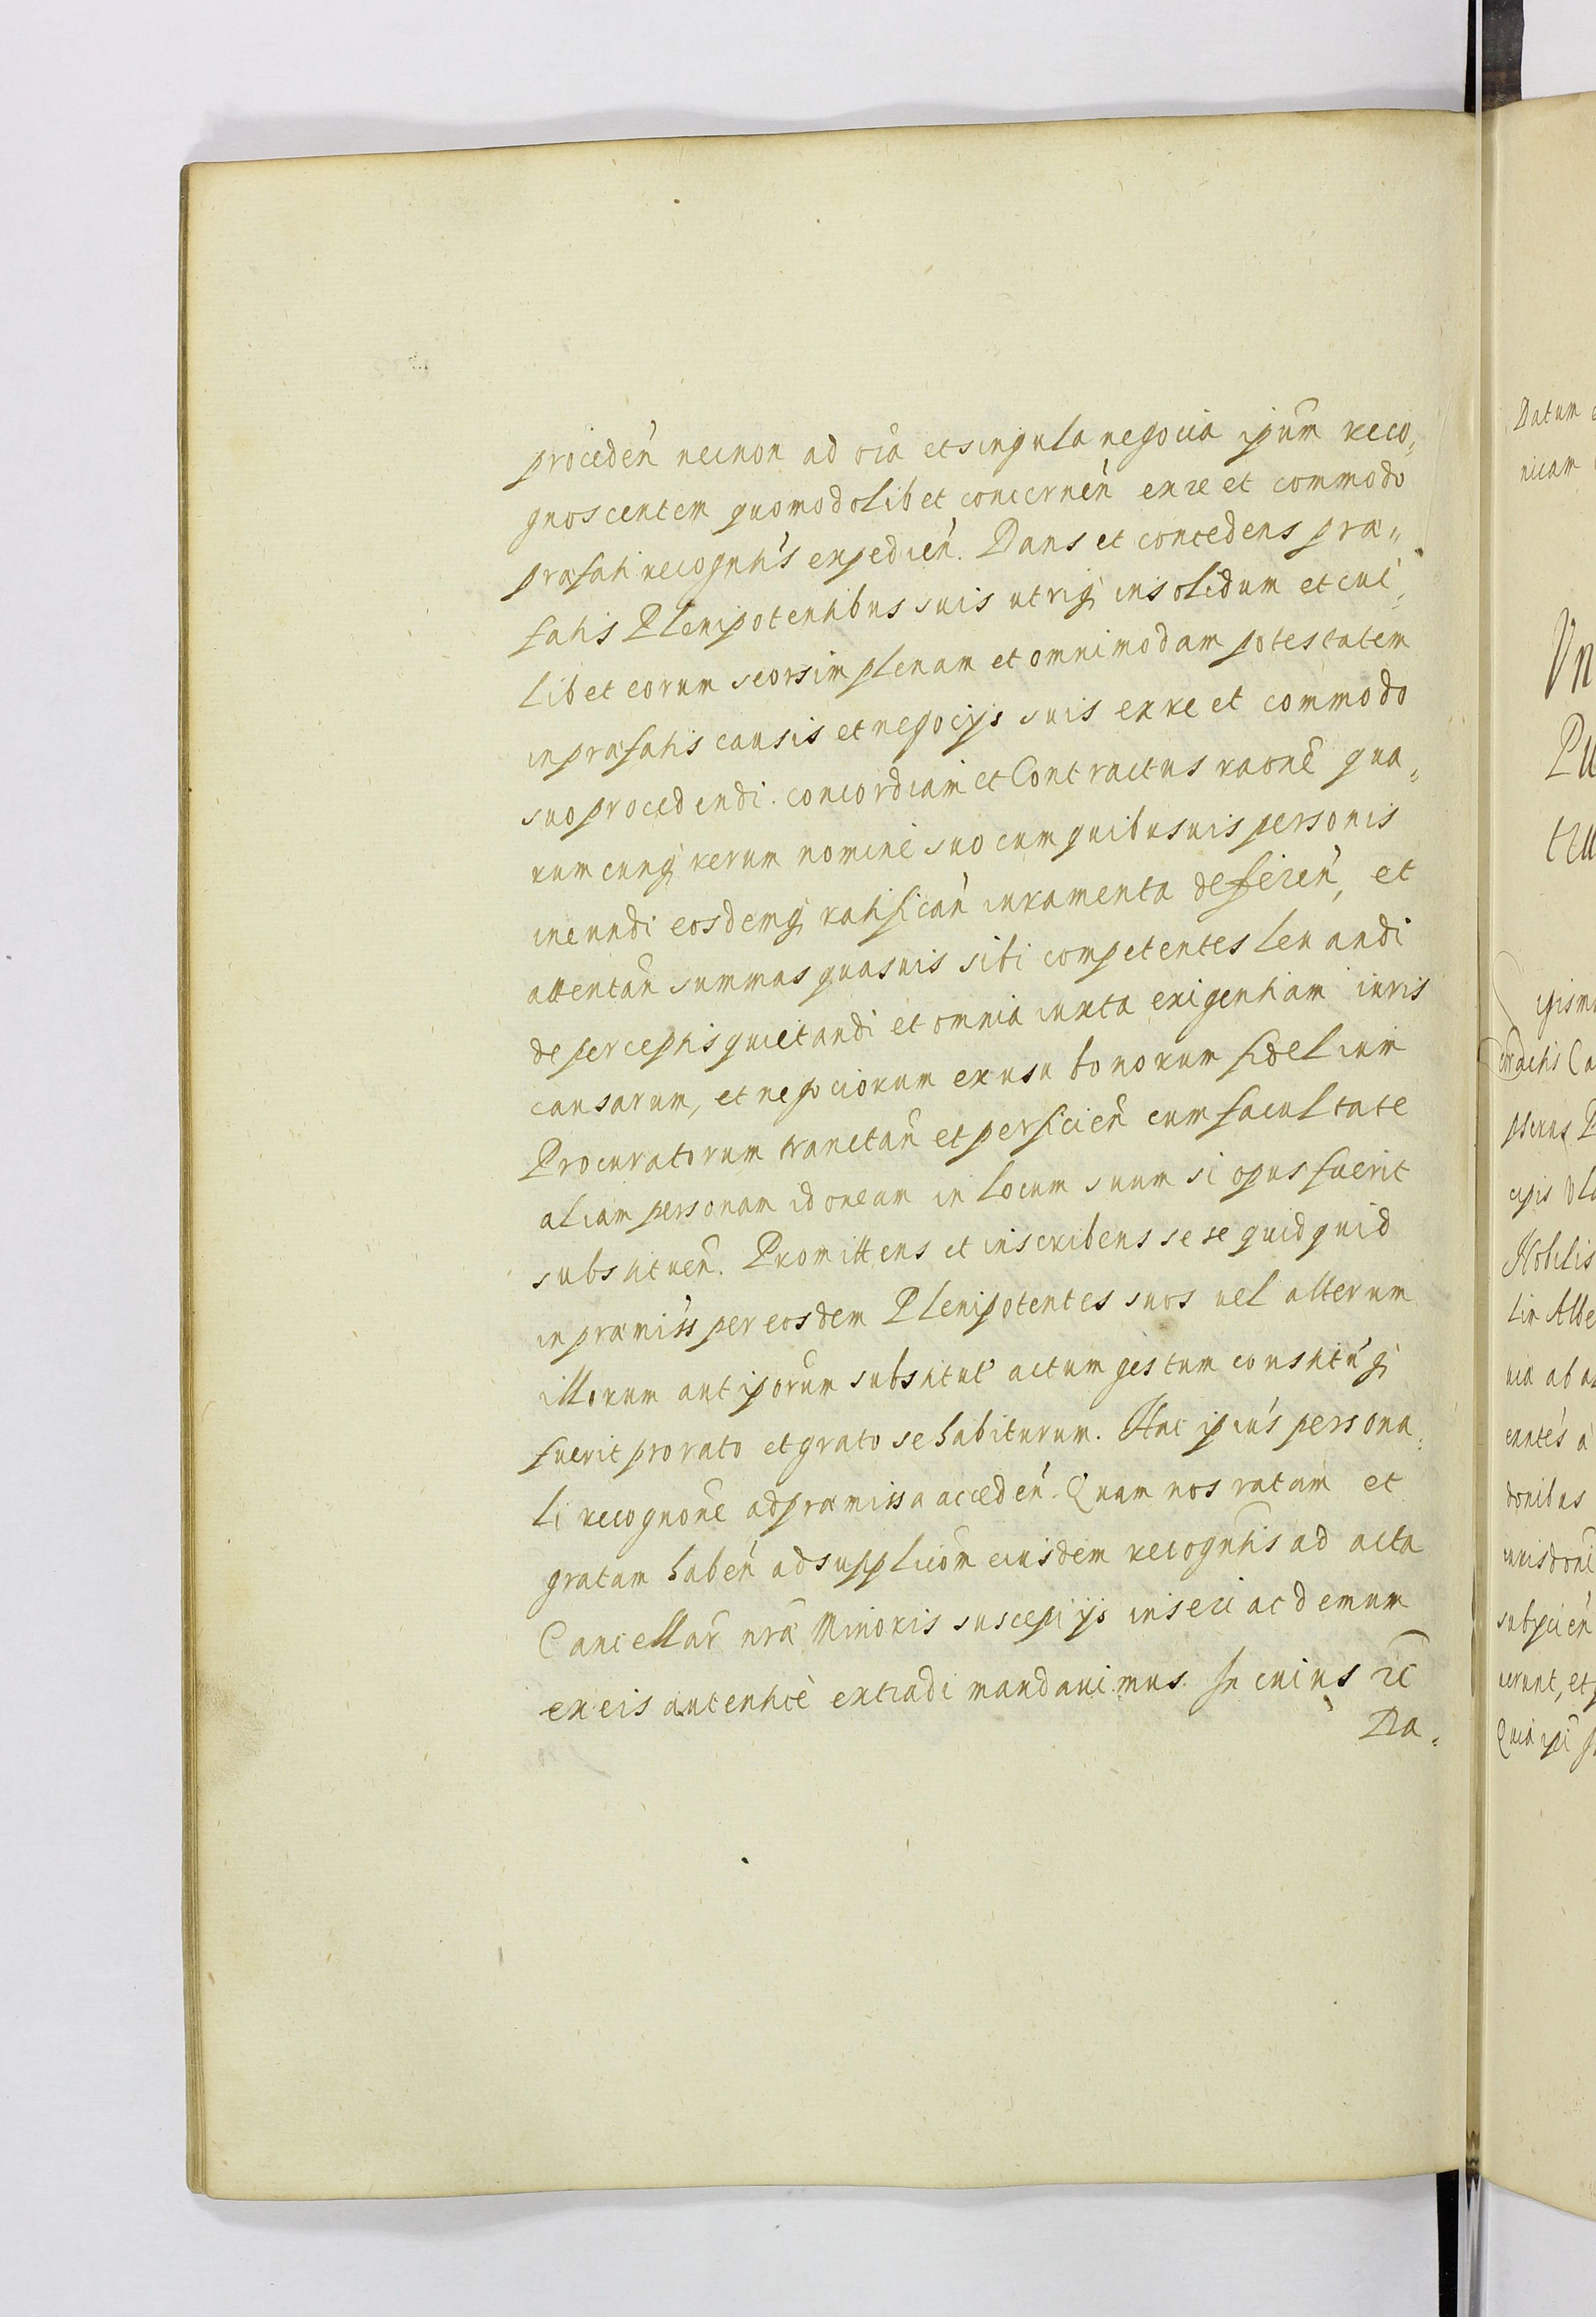 proceden̄ necnon ad oīa et singula negocia ipsum̄ reco„
gnoscentem quomodolibet concernen̄ ex re et commodo
præfati recognt̄is expedien̄. Dans et concedens præ„
fatis Plenipotentibus suis utriq; in solidum et cui„
libet eorum seorsim plenam et omnimodam potestatem
in præfatis causis et negocÿs suis ex re et commodo
suo procedendi. concordiam et Contractus raōne qua„
rumcunq; rerum nomine suo cum quibusuis personis
ineundi eosdemq; ratifican̄ iuramenta deferen̄, et
attentan̄ summas quasuis sibi competentes leuandi
de perceptis quietandi et omnia iuxta exigentiam iuris
causarum, et negociorum ex usu bonorum fidelium
Procuratorum tractan̄ et perficien̄ cum facultate
aliam personam idoneam in locum suum si opus fuerit
substituen̄. Promittens et inscribens sese quidquid
in præmiss̄ per eosdem Plenipotentes suos uel alterum
illorum aut ip̄orum substitut̄ actum gestum constitūq;
fuerit pro rato et grato se habiturum. Hac ip̄ius persona„
li recognōne ad præmissa acceden̄. Quam nos ratam et
gratam haben̄ ad supplicōm eiusdem recognt̄is ad acta
Cancellar̄ nrǣ Minoris suscepi ÿs inseri ac demum
ex eis autenticè extradi mandauimus. In cuius rc̄
Da„

Datum
nicam
Vn
Pu
tru